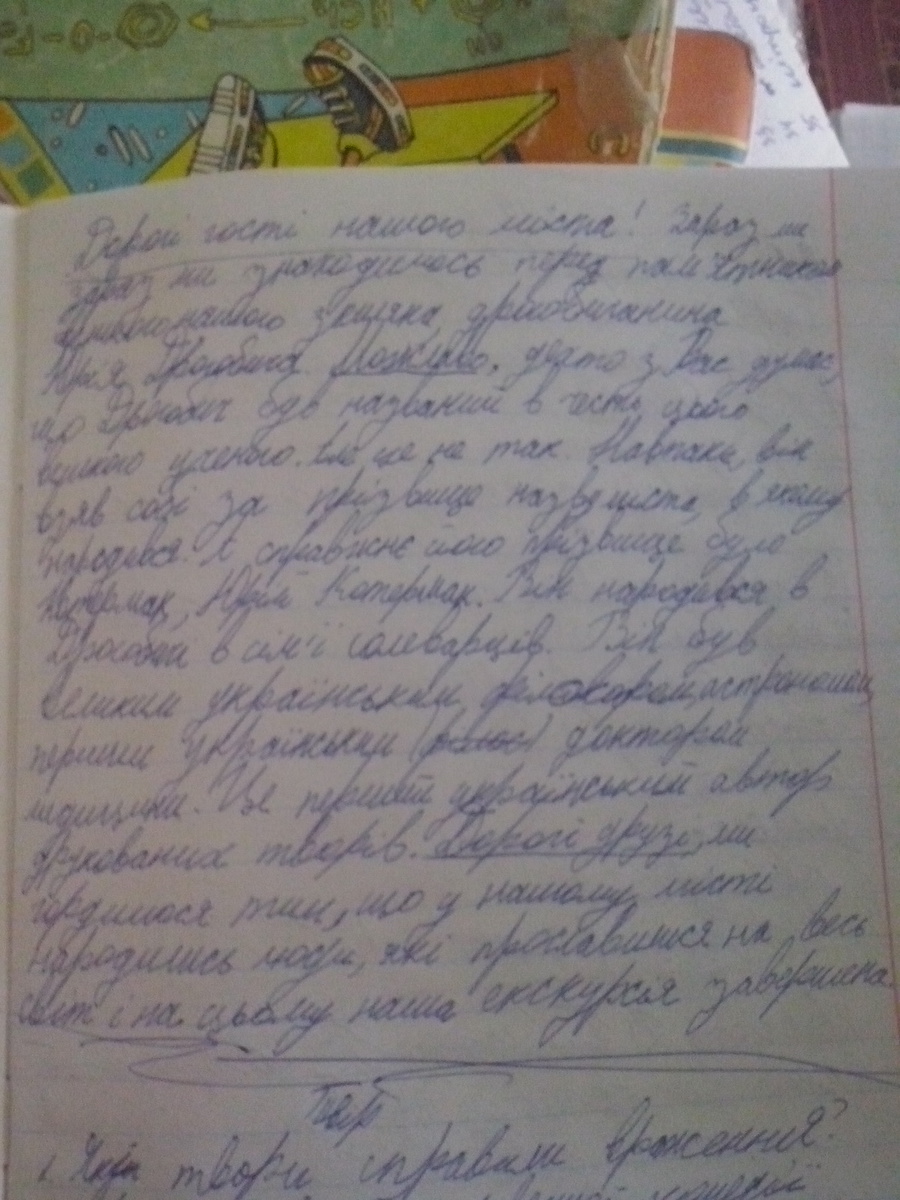 Дорогі гості нашого міста! Зараз ми
зараз ми знаходимось перед пам'ятником
нашого земляка, дрогобичанина
Юрія Дрогобича. Можливо, дехто з Вас думає,
що Дрогобич був названий в честь цього
великого ученого. Але це не так. Навпаки, він
взяв собі за прізвище назву міста, в якому
народився. А справжнє його прізвище було
Котермак, Юрій Котермак. Він народився в
Дрогобичі в сім'ї солеварців. Він був
великим українським філософом, астрономом,
першим українським доктором
медицини. Це перший український автор
друкованих творів. Дорогі друзі, ми
гордимося тим, що у нашому місті
народились люди, які прославилися на весь
світ і на цьому наша екскурсія завершена.
Твір
1. Які твори справили враження?